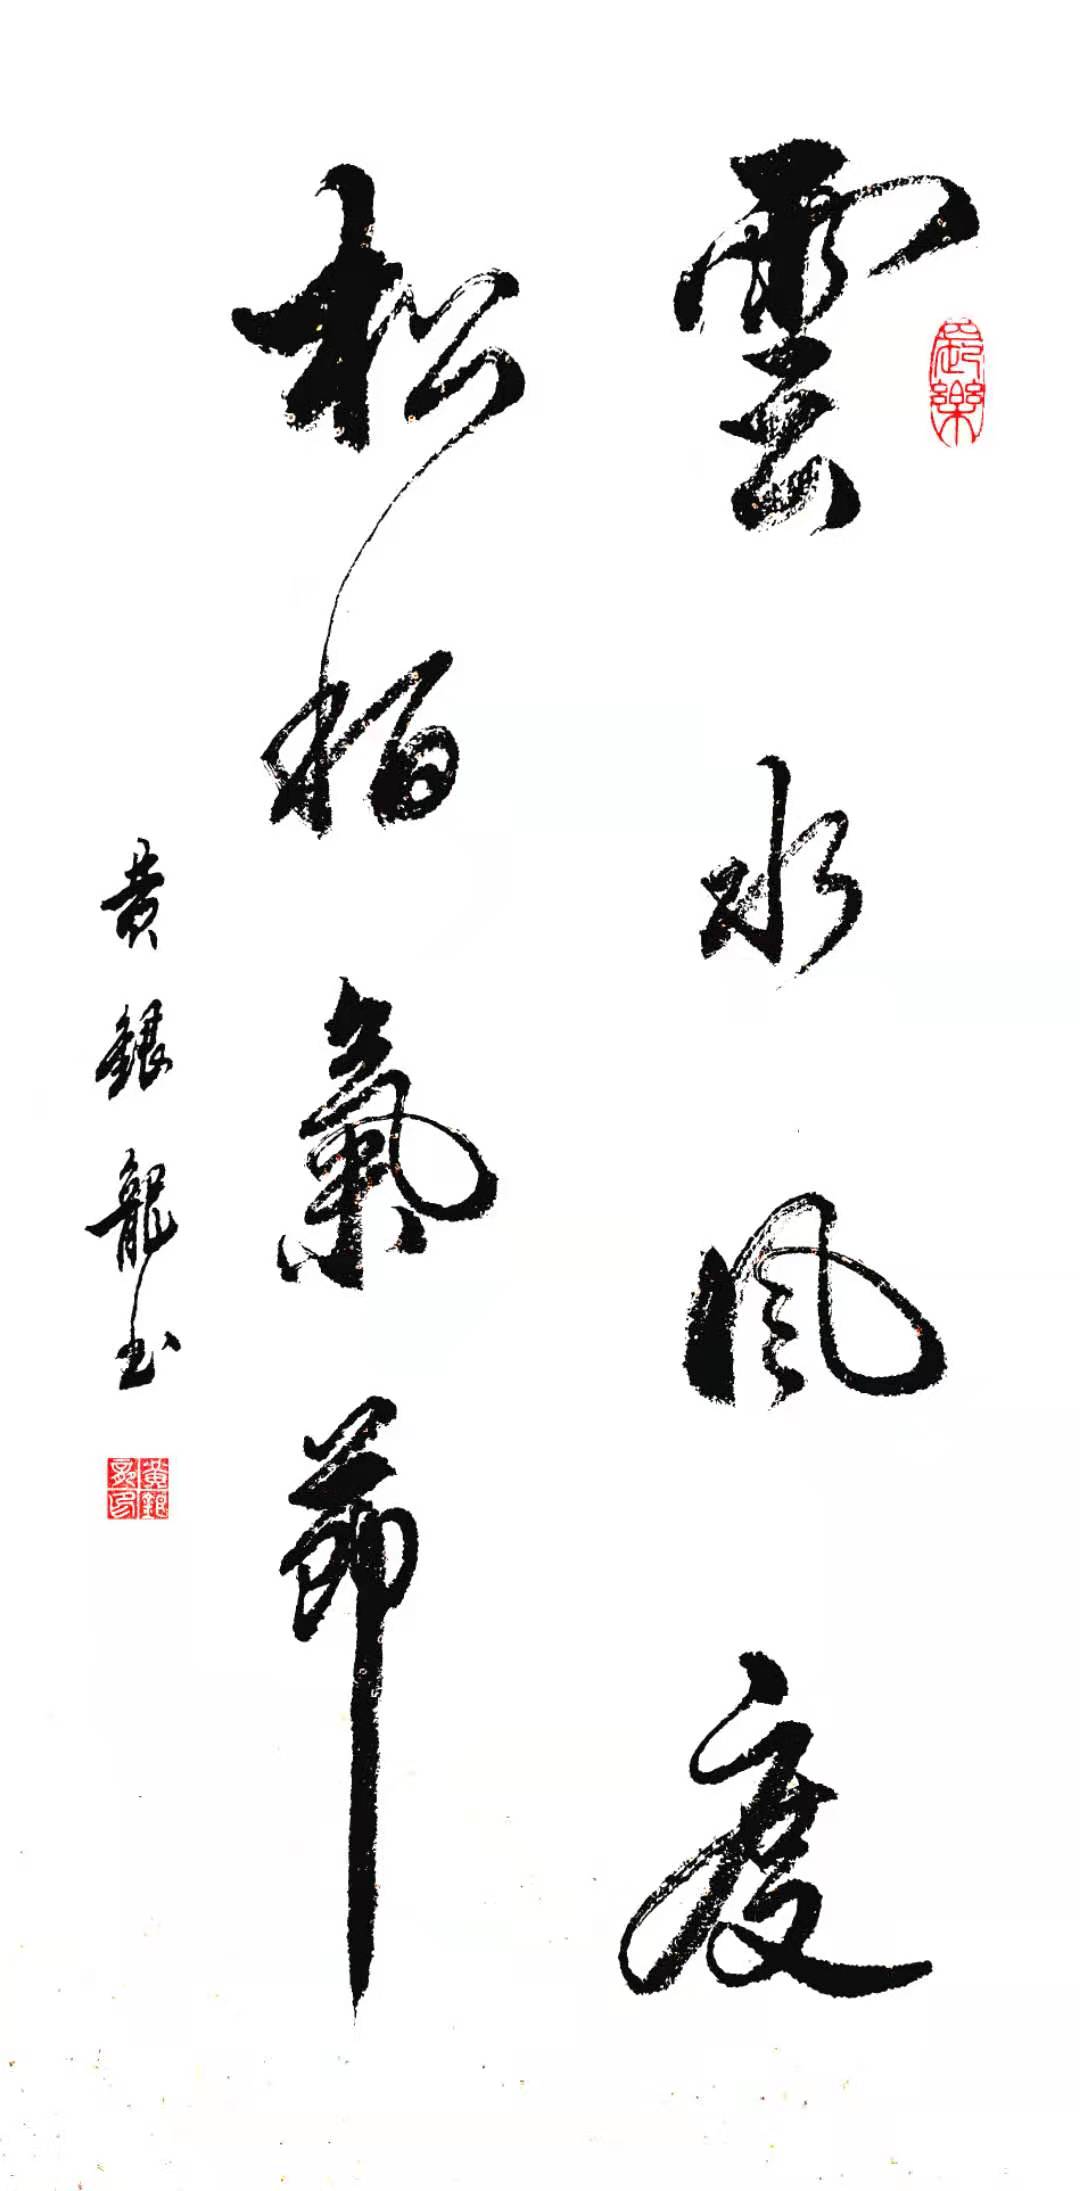 雲水風度
松柏氣節
黄銀龍书